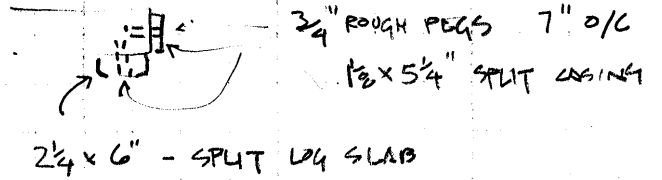 3/4" ROUGH PEGS 7" O/C
1 1/2 x 5 1/4" SPLIT CASING
2 1/4 x 6" - SPLIT LOG SLAB